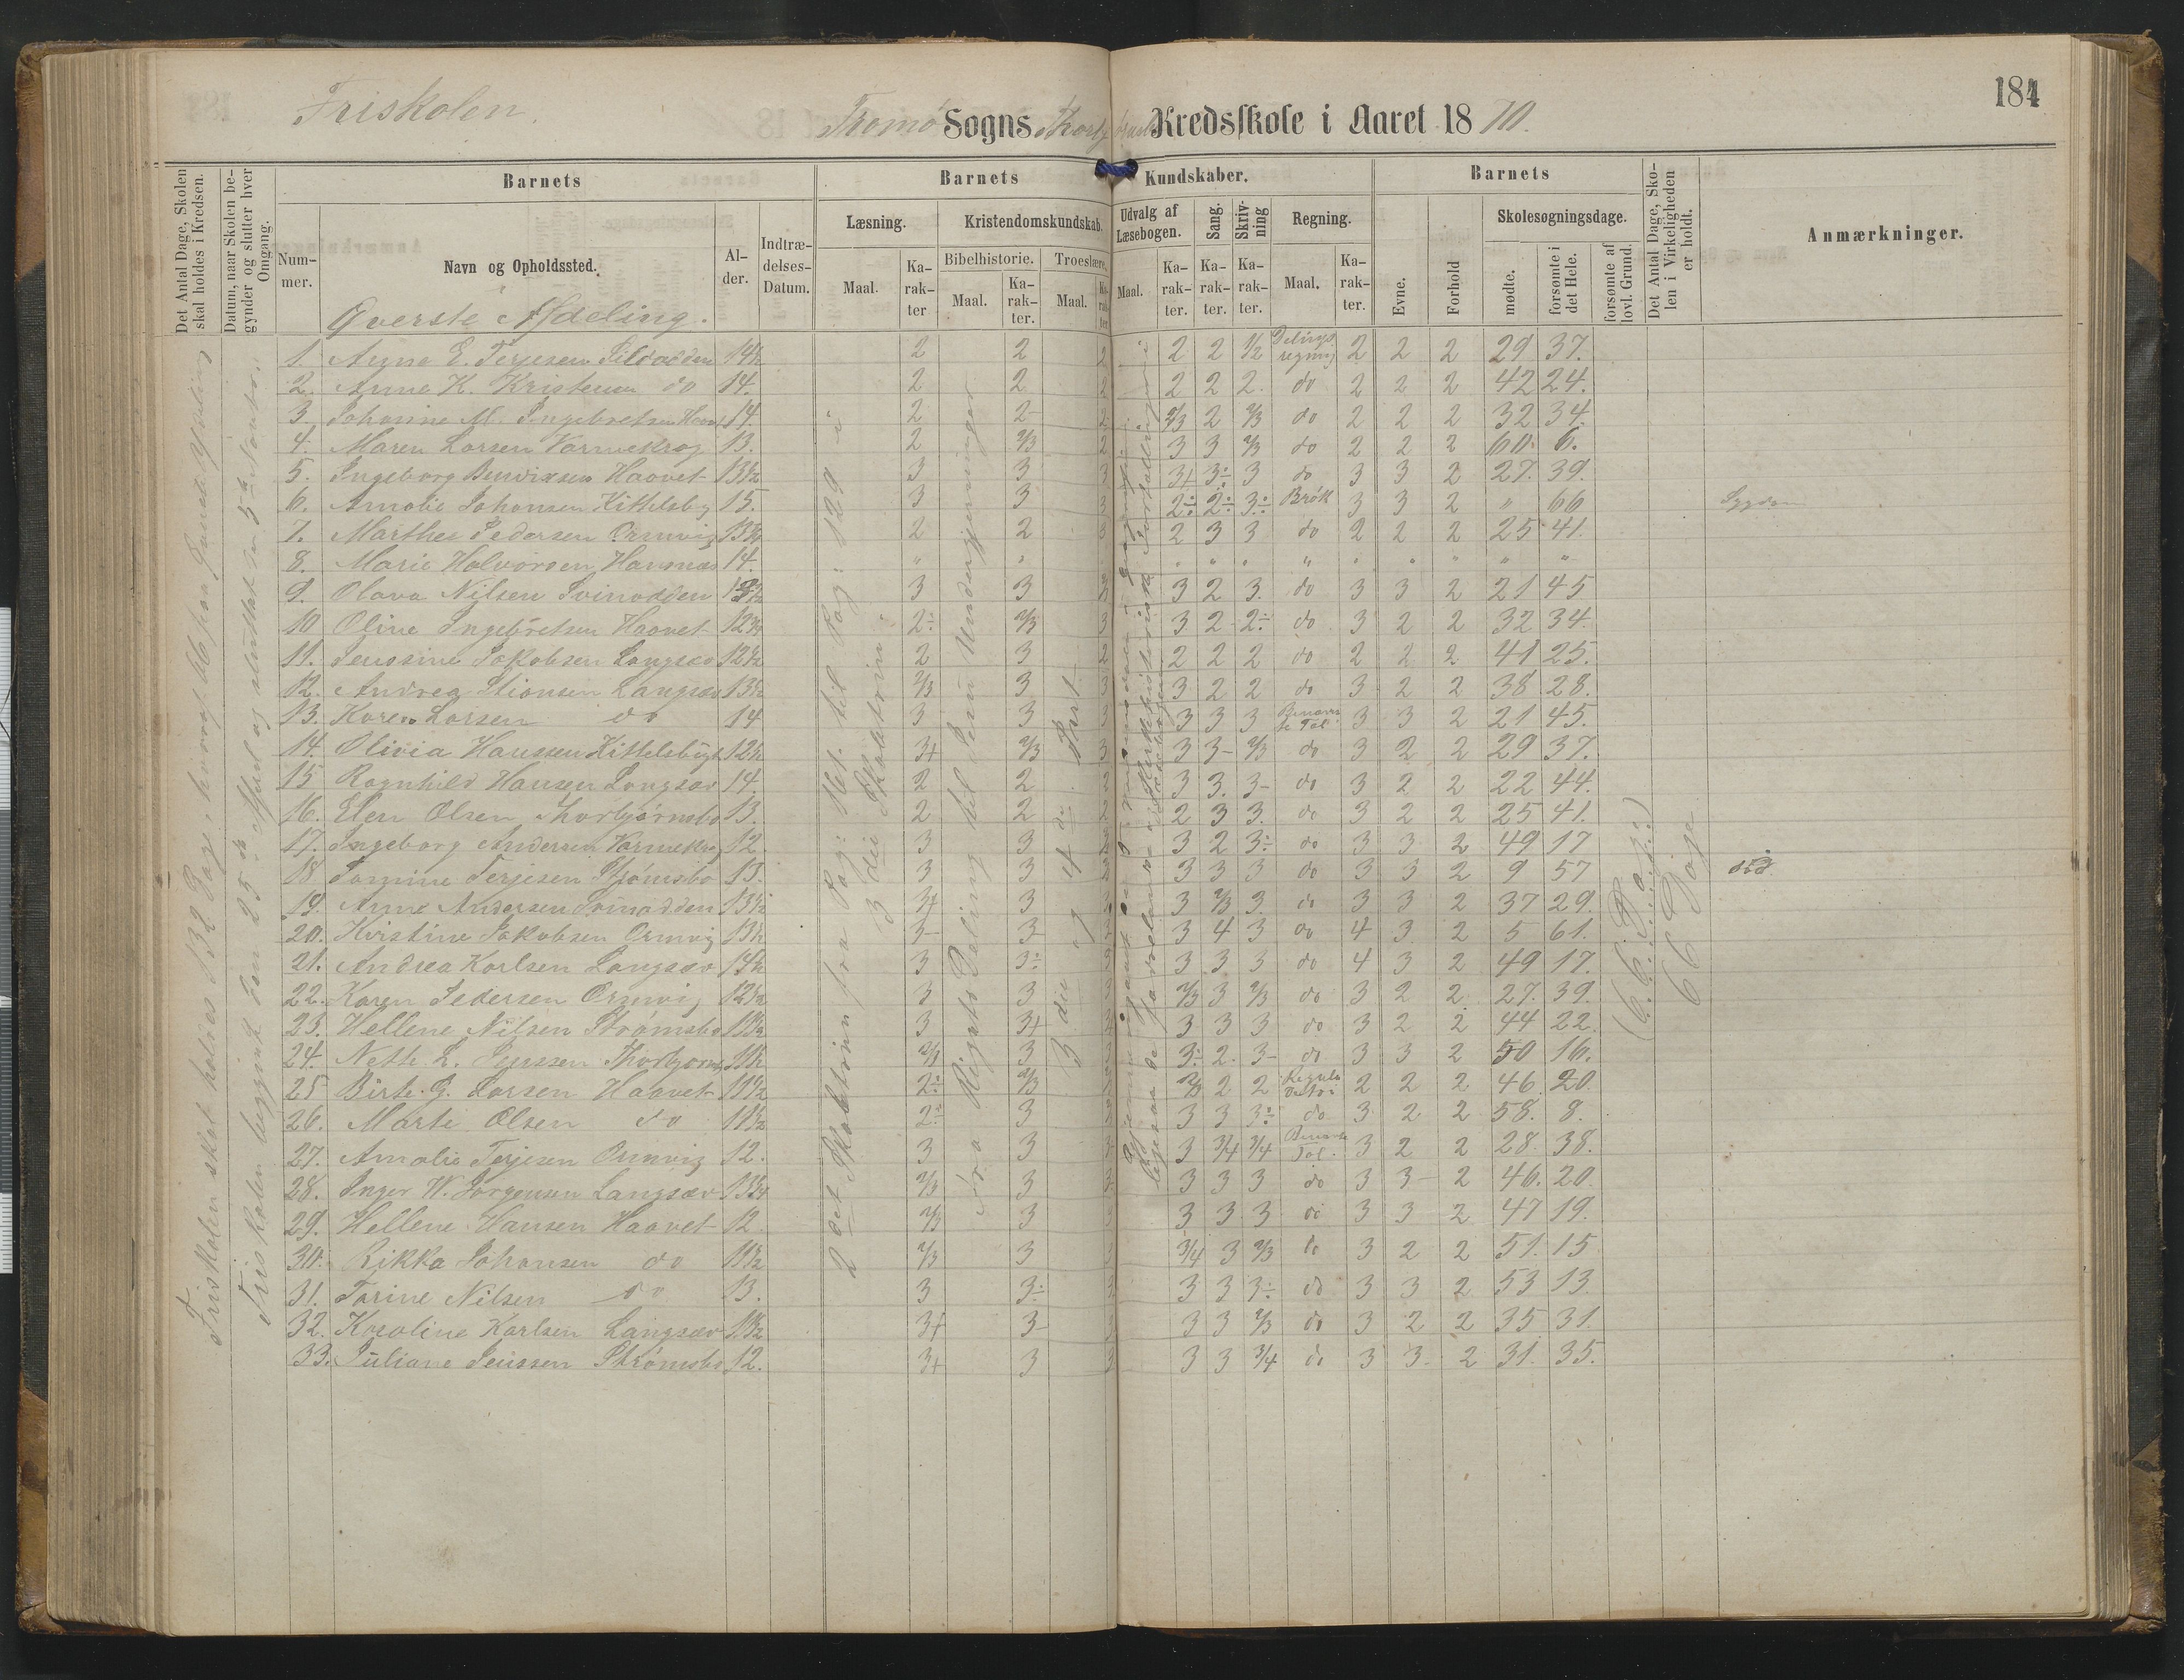 184
Friskolen.
Tromø Sogns Kredsskole i Aaret 1870.
Det Antal Dage, Skolen skal holdes i Kredsen.
Datum, naar Skolen begynder og slutter hver Omgang.
Barnets
Barnets Kundskaber.
Barnets
Det Antal Dage, Skolen i Virkeligheden er holdt.
Anmærkninger.
Nummer.
Navn og Opholdssted.
Alder.
Indtrædelses-Datum.
Læsning.
Kristendomskundskab.
Udvalg af Læsebogen.
Sang.
Skrivning
Regning.
Evne.
Forhold
Skolesøgningsdage.
Bibelhistorie.
Troeslære.
Maal.
Karakter
Maal.
Karakter.
Maal.
Karakter
Maal.
Karakter.
Karakter.
Karakter.
Maal.
Karakter.
mødte.
forsømte i det Hele.
forsømte af lovl. Grund.
Øverste Afdeling.
1. 14½ 2 2 2 2 2 ½ Delings regning 2 2 2 29 37.
2. Anne K. Kristensen do 14. 2 2 2 2 2 2. do 2 2 2 42 24.
3 Johanne M. Ingebretsen 14. 2 2- 2 2/3 2 2/3 do 2 2 2 32 34.
4. Maren Larsen Varmekrog 13. 2 2/3 2 3 3 2/3 do 2 2 2 60. 6.
5. Ingeborg Bendixsen Haavet 13½ 3 3 3 3+ 3÷ 3 do 3 3 2 27. 39.
6. Amalie Johansen Kittelsby 15. 3 3 3 2÷ 2÷ 3÷ Brøk 3 3 2 " 66 Sygdom
7. Marthea Pedersen Ormvig 13¾ 2 2 3 2 3 3 do 2 2 2 25 41.
8. Marie Halvorsen 14. " " " " " " " " " " "
9. Olava Nilsen Svinodden 3 3 3 3 2 3. do 3 3 2 21 45
10 Oline Ingebretsen Haavet 12¾ 2÷ 2/3 3 3 2 2÷ do 3 2 2 32 34.
11. Jensine Jakobsen Langsæ 12½ 2 3 2 2 2 2 do 2 2 2 41 25.
12. Andrea Stiansen Langsæv 13½ 2/3 3 3 3 2 2 do 3 2 2 38 28.
13. Karen Larsen do 14 3 3 3 3 3 3 Benævnte Tal 3 3 2 21 45.
14. Olivia Hanssen Kittelsbugt 12½ 3+ 2/3 3 3 3- 2/3 do 3 2 2 29 37.
15 Ragnhild Hansen Langsæv 14. 2 2 2 3 3. 3- do 3 2 2 22 44.
16. Elen Olsen Thorbjørnsbo 13. 2 2 2 2 3 3. do 3 2 2 25 41.
17. Ingeborg Andersen Varmekrog 12. 3 3 3 3 2 3÷ do 3 3 2 49 17
18 Tomine Terjesen Strømsbo 13. 3 3 3 3 3 3 do 3 3 2 9 57 død
19. Anne Andersen Svinodden 13½ 3+ 3 3 3 2/3 3 do 3 3 2 37 29.
20. Kirstine Jakobsen Ormvig 13½ 3- 3- 3 4 3 do 4 3 2 5 61.
21. Andrea Karlsen Langsæv 14½ 3 3÷ 3 3 3 3 do 4 3 2 49 17.
22. Karen Pedersen Ormvig 12½ 3 3 3 2/3 3 2/3 do 3 2 2 27. 39.
23. Hellene Nilsen Strømsbo 11½ 3 3+ 3 3 3 do 3 2 2 44 22.
24. Nette L. Jenssen 11½ 2/3 3 3 3÷ 2. 3- do 3 3 2 50 16.
25 Birte G. Larsen Haavet 11½ 2÷ 2/3 2/3 2 2 Regula Detri 2 2 2 46. 20.
26. Marte Olsen do 11½ 2÷ 3 3 3 3÷ do 3 2 2 58. 8.
27. Amalie Terjesen Ormvig 12. 3 3 3 3 3/4 3/4 Benævnte Tal. 3 2 2 28. 38.
28. Inger W. Jørgensen Langsæv 13¾ 2/3 3 3 3 3 3 do 3 3- 2 46. 20.
29. Hellene Hansen Haavet 12. 2/3 3 3 3 3 3 do 3 3 2 47 19.
30. Rikka Johansen do 11½ 2/3 3 3 3/4 3 2/3 do 3 2 2 51. 15
31. Tarine Nilsen do 13. 3 3÷ 3 3 3 3÷ do 3 3 2 53 13.
32. Karoline Karlsen Langsæv 11½ 3+ 3- 3 3 3 2/3 do 3 2 2 35 31.
33. Juliane Jenssen Strømsbo 12. 3+ 3 3 3 3 3/4 do 3 3 2 31. 35.
Friskolen skal holdes i 132 Dage, hvoraf 66 paa
Friskolen begynt den 25de April og sluttet den
2det Skoletrin fra Pag: 161 til Pag: 129 i
3die Skoletrin.
fra Rigets Deling til Jesu Undergjerninger
3die og 4de Part.
66 Dage